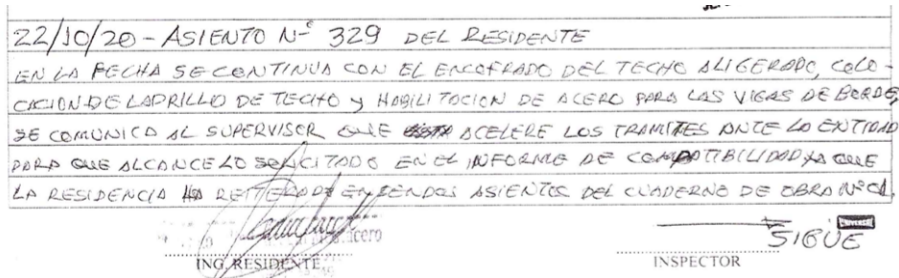 22/10/20 - ASIENTO N° 329 DEL RESIDENTE
EN LA FECHA SE CONTINUA CON EL ENCOFRADO DEL TECHO ALIGERADO, COLO-
CACION DE LADRILLO DE TECHO Y HABILITACION DE ACERO PARA LAS VIGAS DE BORDE,
SE COMUNICA AL SUPERVISOR QUE ACELERE LOS TRAMITES ANTE LA ENTIDAD
PARA QUE ALCANCE LO SOLICITADO EN EL INFORME DE COMPATIBILIDAD YA QUE
LA RESIDENCIA HA REITERADO EN SENDOS ASIENTOS DEL CUADERNO DE OBRA N° 01.
SIGUE
ING. RESIDENTE
INSPECTOR